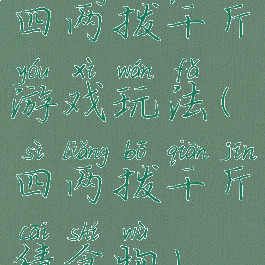 四两拨千斤
yóu xì wán fǎ
游戏玩法(
sì liǎng bō qiān jīn
四两拨千斤
cāi shí wù
猜食物)